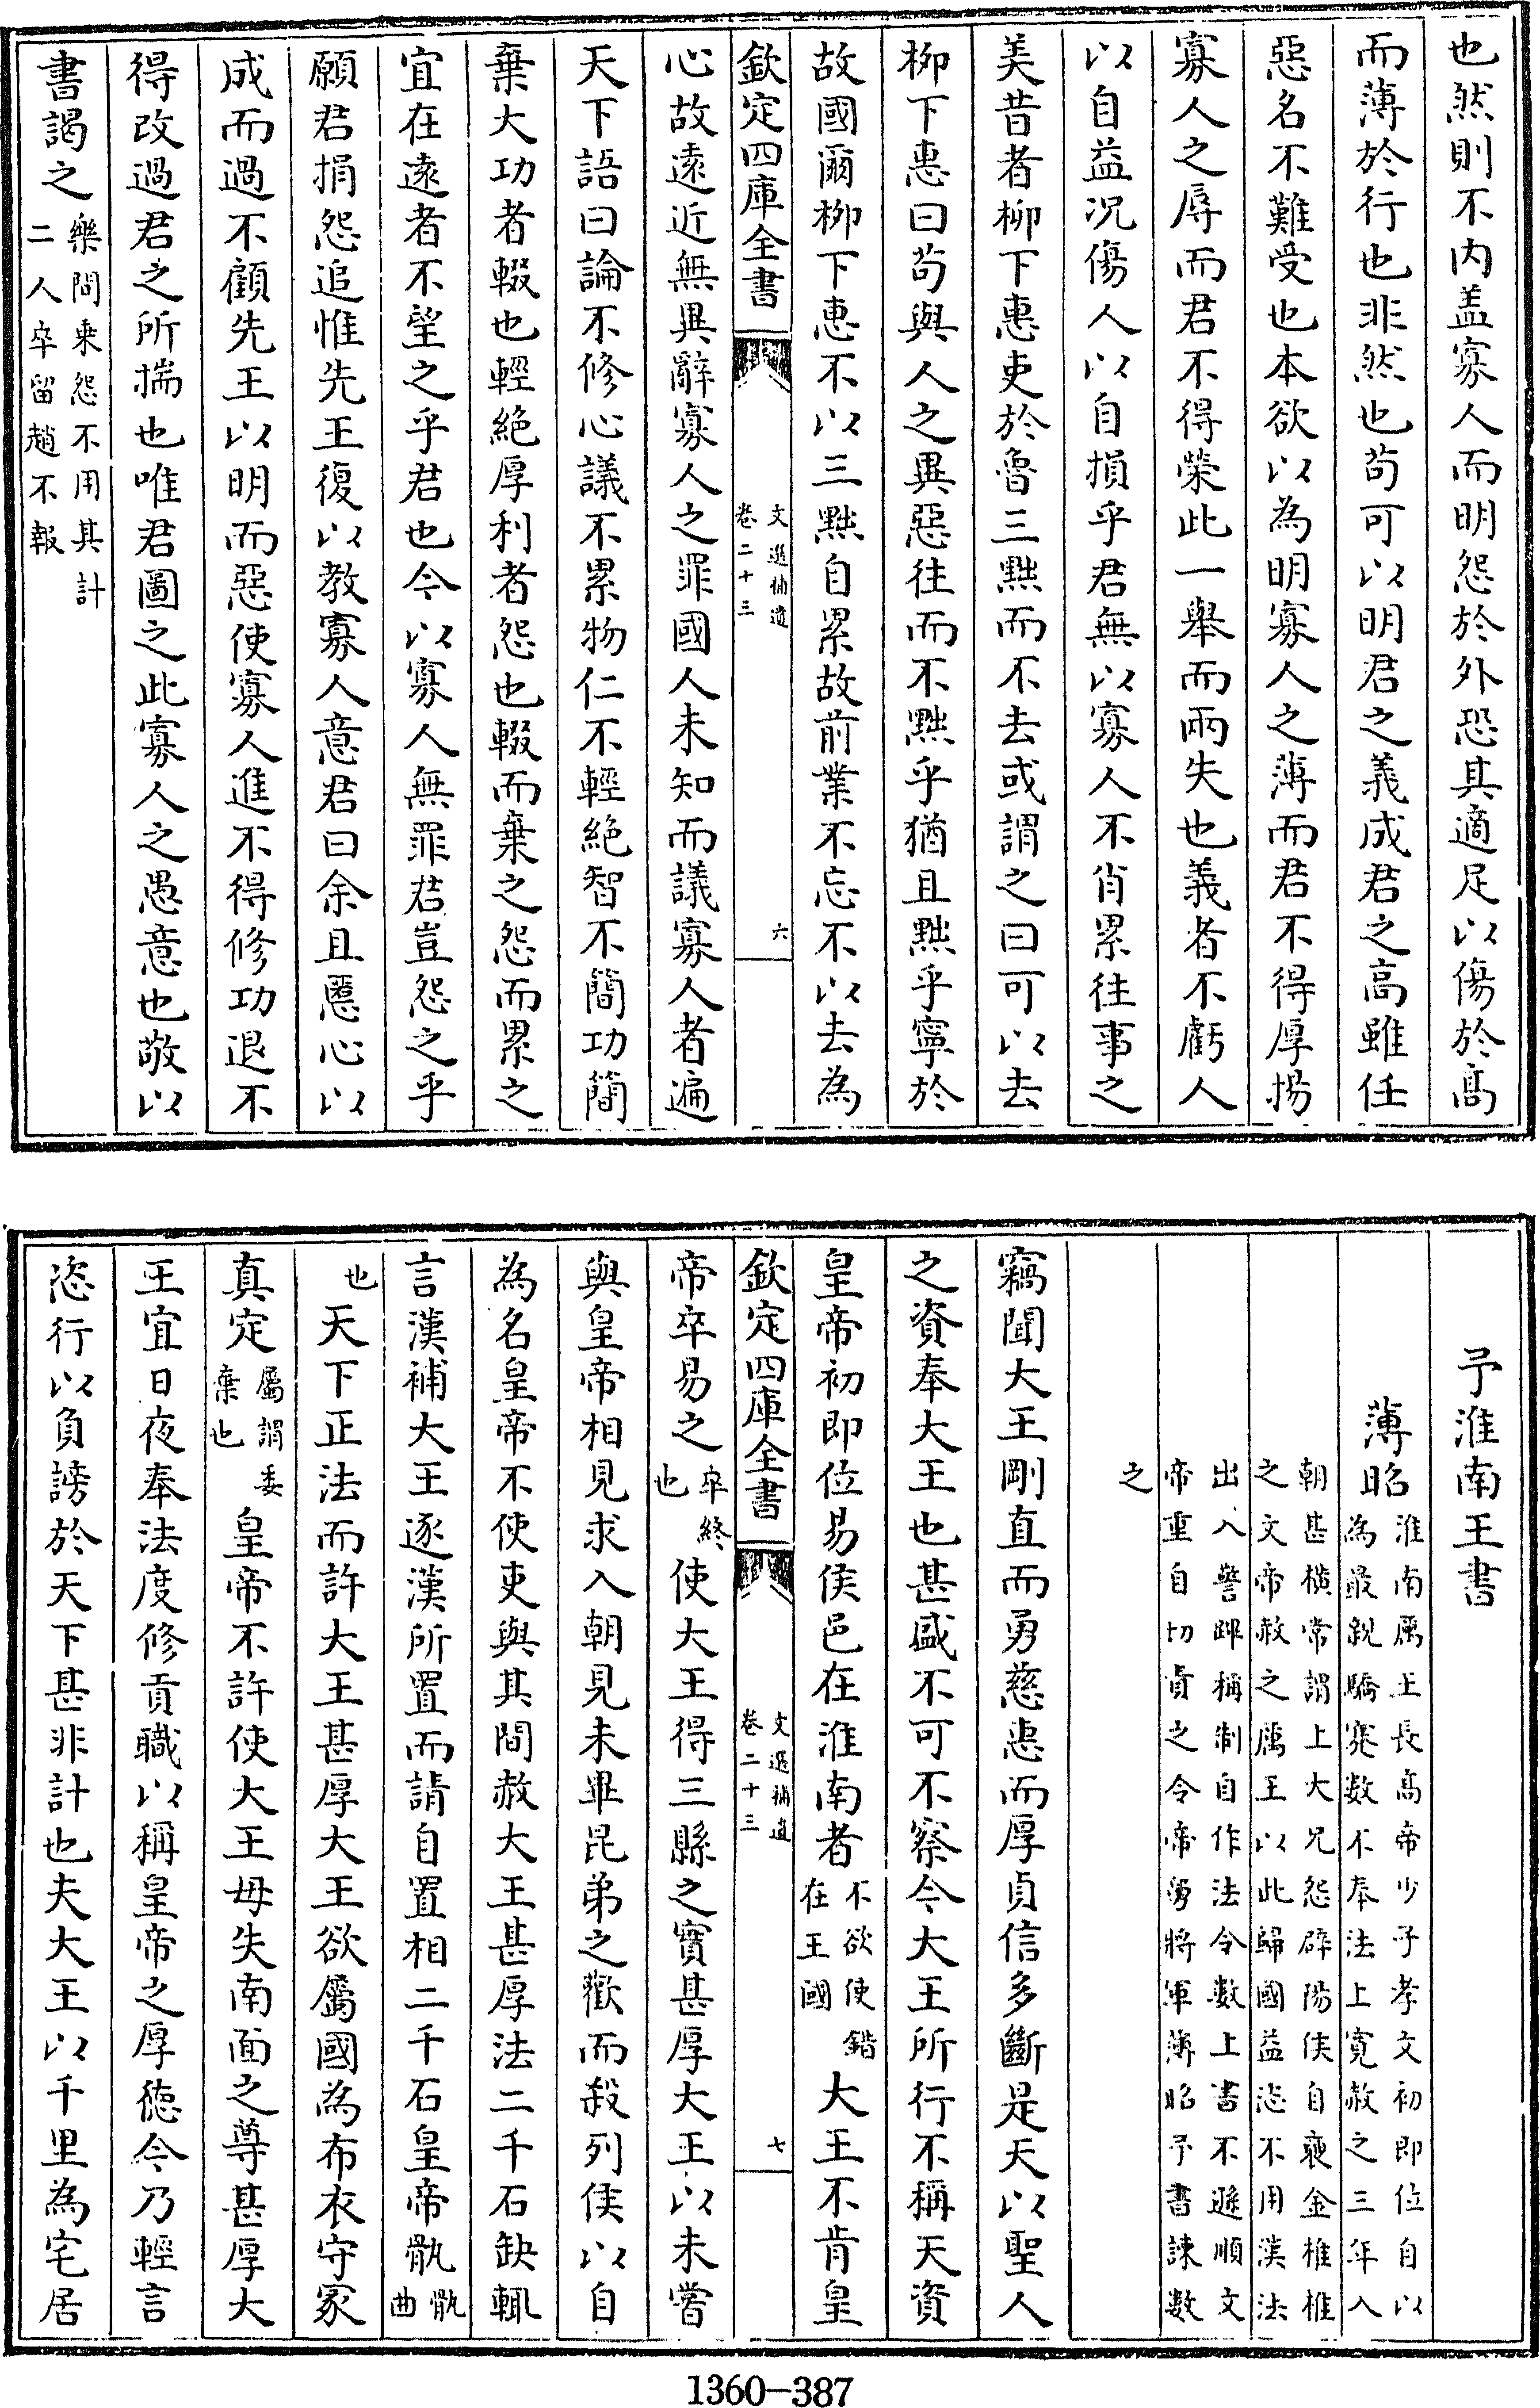 也然則不内盖寡人而明怨於外恐其適足以傷於髙
而薄於行也非然也苟可以明君之義成君之高雖任
惡名不難受也本欲以為明寡人之薄而君不得厚揚
寡人之辱而君不得榮此一舉而兩失也義者不虧人
以自益况傷人以自損乎君無以寡人不肖累往事之
美昔者柳下惠吏於魯三黜而不去或謂之曰可以去
柳下惠曰苟與人之異惡往而不黜乎猶且黜乎寧於
故國爾柳下惠不以三黜自累故前業不忘不以去為
欽定四庫全書
文選補遺
卷二十三
六
心故遠近無異辭寡人之罪國人未知而議寡人者遍
天下語曰論不修心議不累物仁不輕絶智不簡功簡
棄大功者輟也輕絶厚利者怨也輟而棄之怨而累之
宜在遠者不望之乎君也今以寡人無罪君豈怨之乎
願君捐怨追惟先王復以教寡人意君曰余且慝心以
成而過不顧先王以明而惡使寡人進不得修功退不
得改過君之所揣也唯君圖之此寡人之愚意也敬以
書謁之
樂間乘怨不用其計
二人卒留趙不報
予淮南王書
薄昭
淮南厲王長高帝少子孝文初即位自以
為最親驕蹇數不奉法上寛赦之三年入
朝甚横常謂上大兄怨辟陽侯自褏金椎椎
之文帝赦之厲王以此歸國益恣不用漢法
出入警蹕稱制自作法令數上書不遜順文
帝重自切責之令帝舅將軍薄昭予書諫數
之
竊聞大王剛直而勇慈惠而厚貞信多斷是天以聖人
之資奉大王也甚盛不可不察今大王所行不稱天資
皇帝初即位易侯邑在淮南者
不欲使錯
在王國
大王不肯皇
欽定四庫全書
文選補遺
卷二十三
七
帝卒易之
卒終
也
使大王得三縣之實甚厚大王以未嘗
與皇帝相見求入朝見未畢昆弟之歡而殺列侯以自
為名皇帝不使吏與其間赦大王甚厚法二千石缺輒
言漢補大王逐漢所置而請自置相二千石皇帝骩
骩
曲
也
天下正法而許大王甚厚大王欲屬國為布衣守冢
真定
屬謂委
棄也
皇帝不許使大王毋失南面之尊甚厚大
王宜日夜奉法度修貢職以稱皇帝之厚徳今乃輕言
恣行以負謗於天下甚非計也夫大王以千里為宅居
1360-387